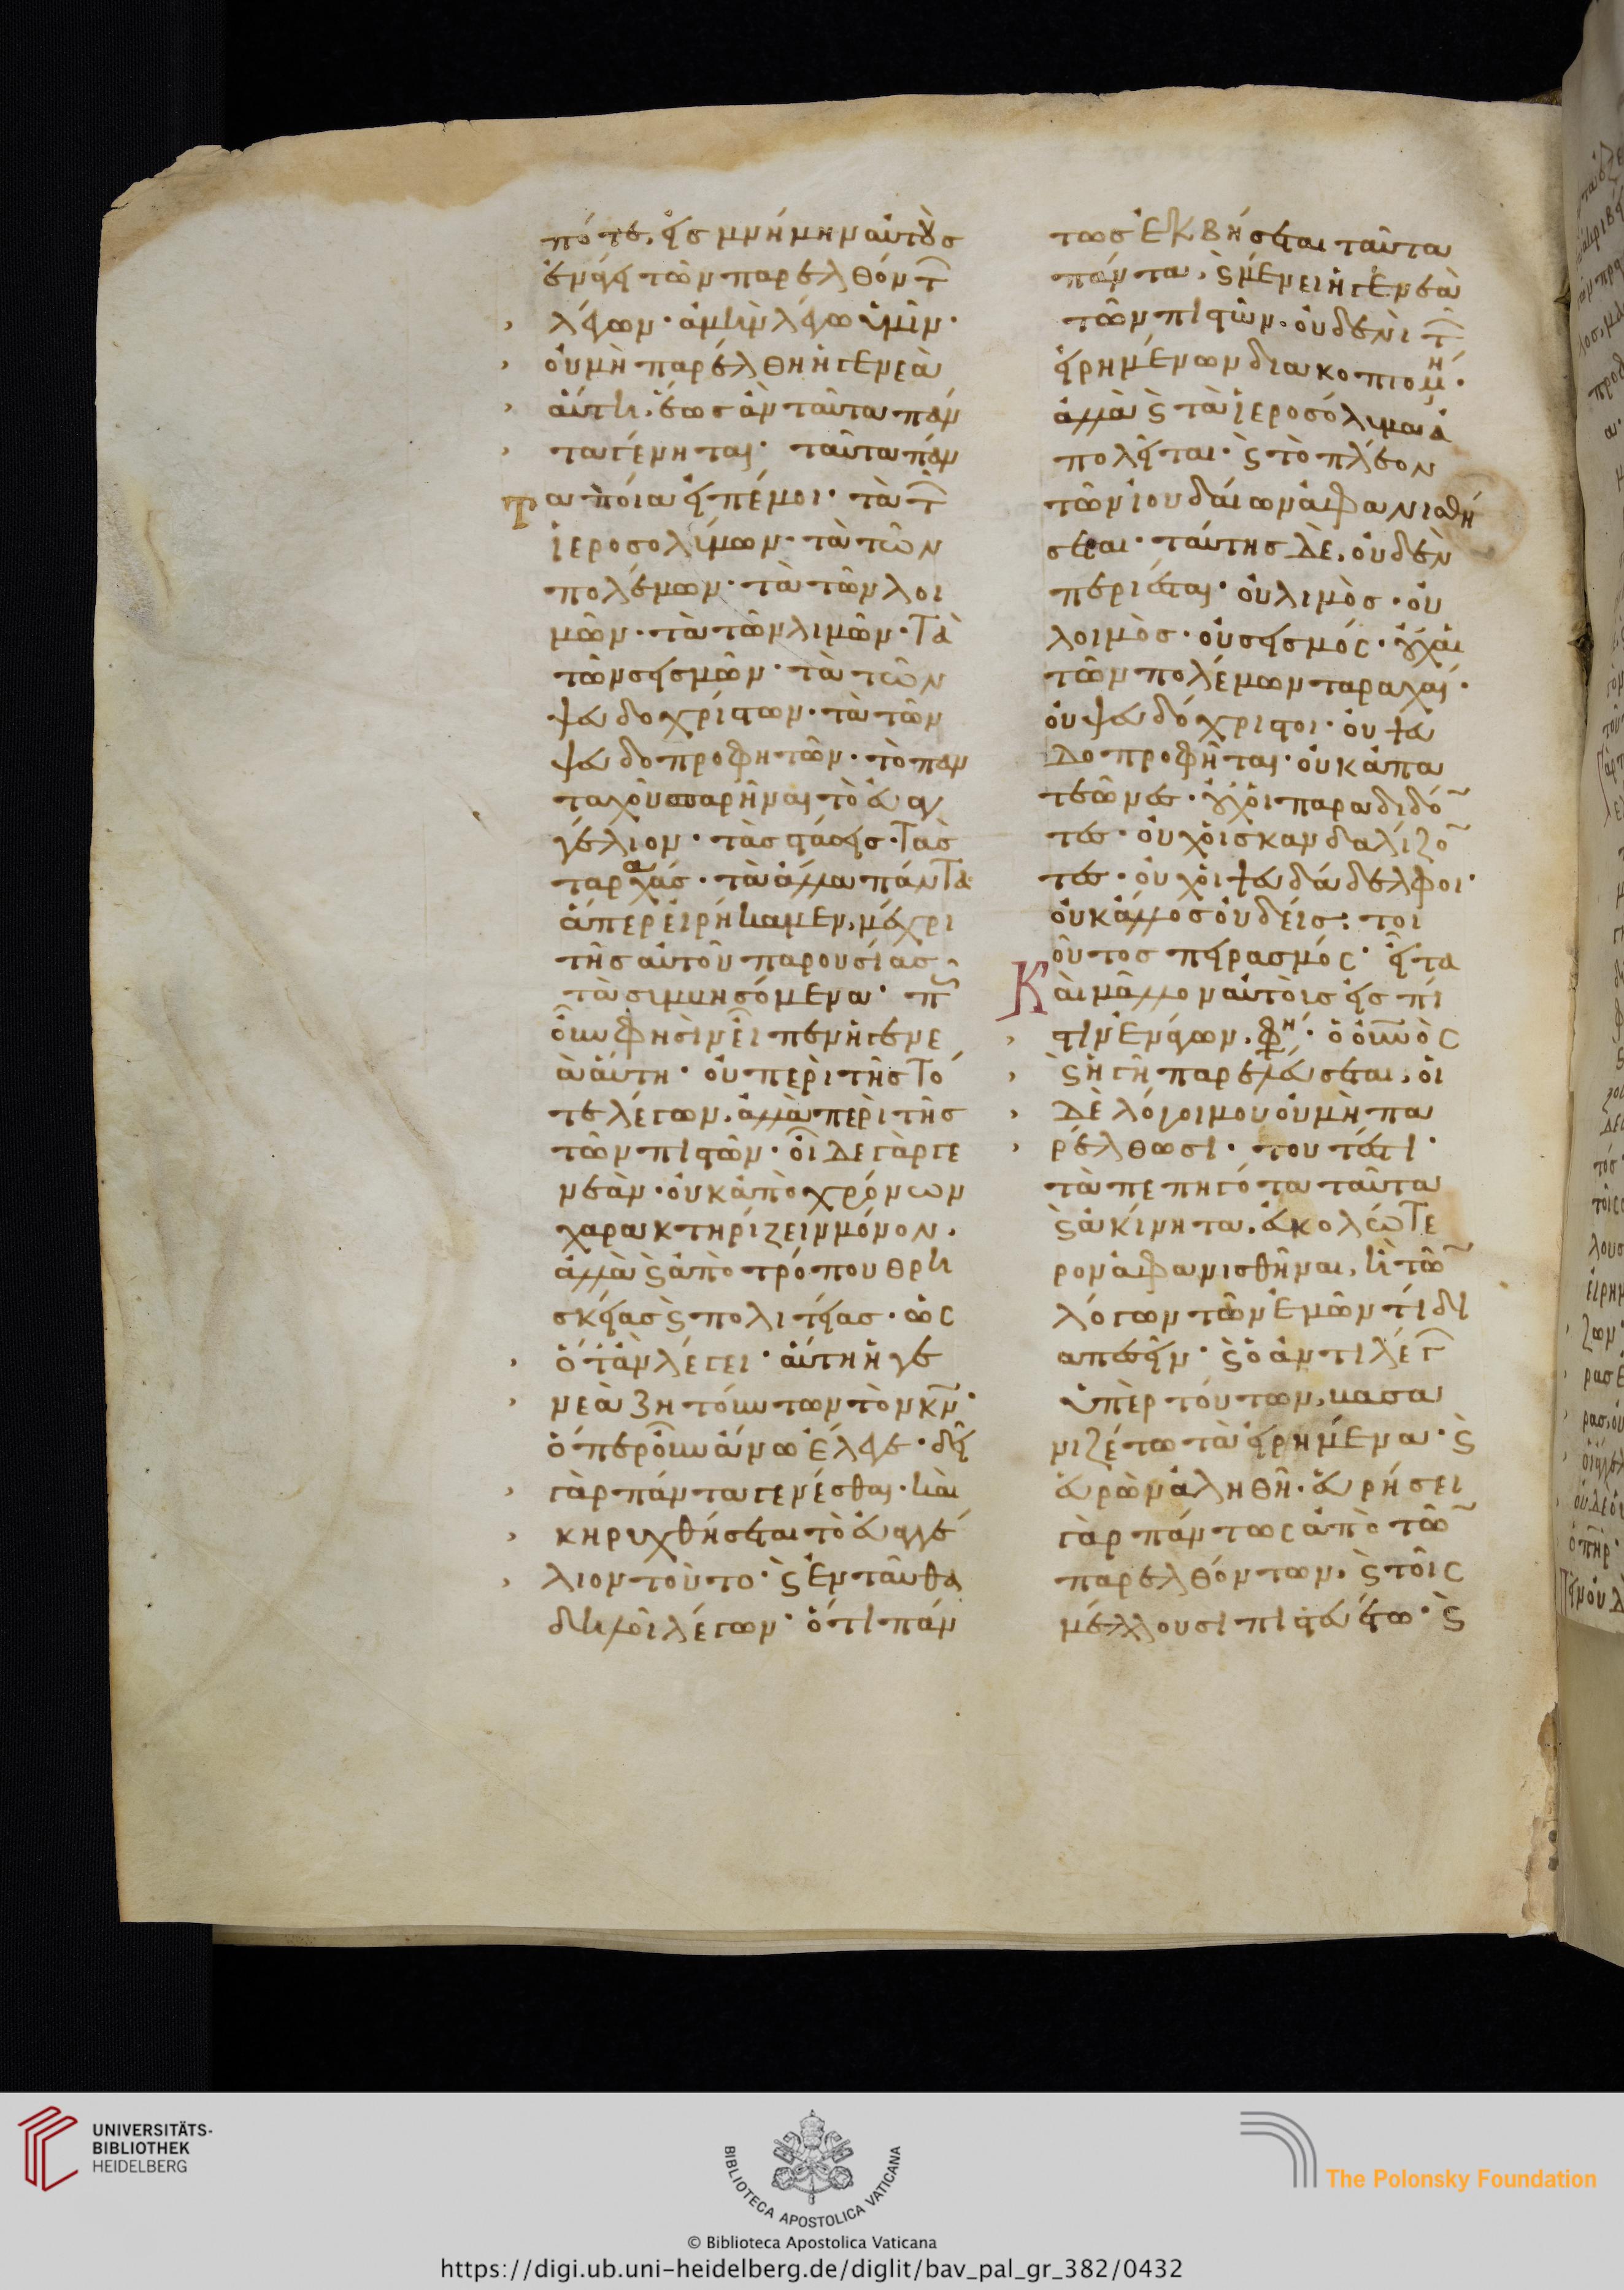 πότε, εἰς μνήμην αὐτοὺς
ἐνάγει τῶν παρελθόντ
λέγων· ἀμὴν λέγω ὑμῖν·
οὐ μὴ παρέλθη ἡ γενεὰ
αὕτη, ἕως ἂν ταῦτα πάν
τα γένηται· ταῦτα πάν
τα ποῖα εἰπέ μοι· τὰ τ
ἱεροσολύμων· τὰ τῶν
πολέμων· τὰ τῶν λοι
μῶν· τὰ τῶν λιμῶν· τὰ
τῶν σεισμῶν· τὰ τῶν
ψευδοχρίστων· τὰ τῶν
ψευδοπροφητῶν· τὸ παν
ταχοῦ σπαρῆναι τὸ εὐαγ
γέλιον· τὰς στάσεις· τὰς
ταραχάς· τὰ ἄλλα πάντα
ἅπερ εἰρήκαμεν, μέχρι
τῆς αὐτοῦ παρουσίας
τὰ συμβησόμενα· π
οὖν φησὶν εἶπεν ἡ γενε
ὰ αὕτη· οὐ περὶ τῆς τό
τε λέγων, ἀλλὰ περὶ τῆς
τῶν πιστῶν· οἶδε γὰρ γε
νεὰν· οὐκ ἀπὸ χρόνων
χαρακτηρίζειν μόνον,
ἀλλὰ ϛ ἀπὸ τρόπου θρη
σκείας ϛ πολιτείας· ὡς
ὅταν λέγει· αὕτη ἡ γε
νεὰ ζητούντων τὸν κν·
ὅπερ οὖν ἄνω ἔλεγε· δεῖ
γὰρ πάντα γενέσθαι· καὶ
κηρυχθήσεται τὸ εὐαγγέ
λιον τοῦτο· ϛ ἐνταῦθα
δηλοῖ λέγων· ὅτι πάν
τως ἐκβήσεται ταῦτα
πάντα, ϛ μένει ἡ γενεὰ
τῶν πιστῶν· οὐδενὶ τ
εἰρημένων διακοπτομη·
ἀλλὰ ϛ τὰ ἱεροσόλυμα ἀ
πολεῖται· ϛ τὸ πλέον
τῶν ἰουδαίων ἀφανισθή
σεται· ταύτης δὲ, οὐδὲν
περιέσται· οὐ λιμὸς· οὐ
λοιμὸς· οὐ σεισμός· οὐχ αἱ
τῶν πολέμων ταραχαί·
οὐ ψευδόχριστοι· οὐ ψευ
δοπροφῆται· οὐκ ἀπα
τεῶνες· οὐχ οἱ παραδιδό
τες· οὐχ οἱ σκανδαλίζο
τες· οὐχ οἱ ψευδάδελφοι·
οὐκ ἄλλος οὐδείς· τοι
οῦτος πειρασμός· εἶτα
καὶ μᾶλλον αὐτοὺς εἰς πί
στιν ἐνάγων, φη· ὁ οὐνὸς
ϛ ἡ γῆ παρελεύσεται, οἱ
δὲ λόγοι μου οὐ μὴ πα
ρέλθωσι· τουτέστι·
τὰ πεπηγότα ταῦτα
ϛ ἀκίνητα, εὐκολώτε
ρον ἀφανισθῆναι, ἢ τῶ
λόγων τῶν ἐμῶν τί δι
απεσεῖν· ϛ ὁ ἀντιλέγ
ὑπὲρ τούτων, βασα
νιζέτω τὰ εἰρημένα· ϛ
εὑρὼν ἀληθῆ· εὑρήσει
γὰρ πάντως ἀπὸ τῶ
παρελθόντων, ϛ τοῖς
μέλλουσι πιστευέτω· ϛ
UNIVERSITÄTS-
BIBLIOTHEK
HEIDELBERG
BIBLIOTECA APOSTOLICA VATICANA
© Biblioteca Apostolica Vaticana
The Polonsky Foundation
https://digi.ub.uni-heidelberg.de/diglit/bav_pal_gr_382/0432